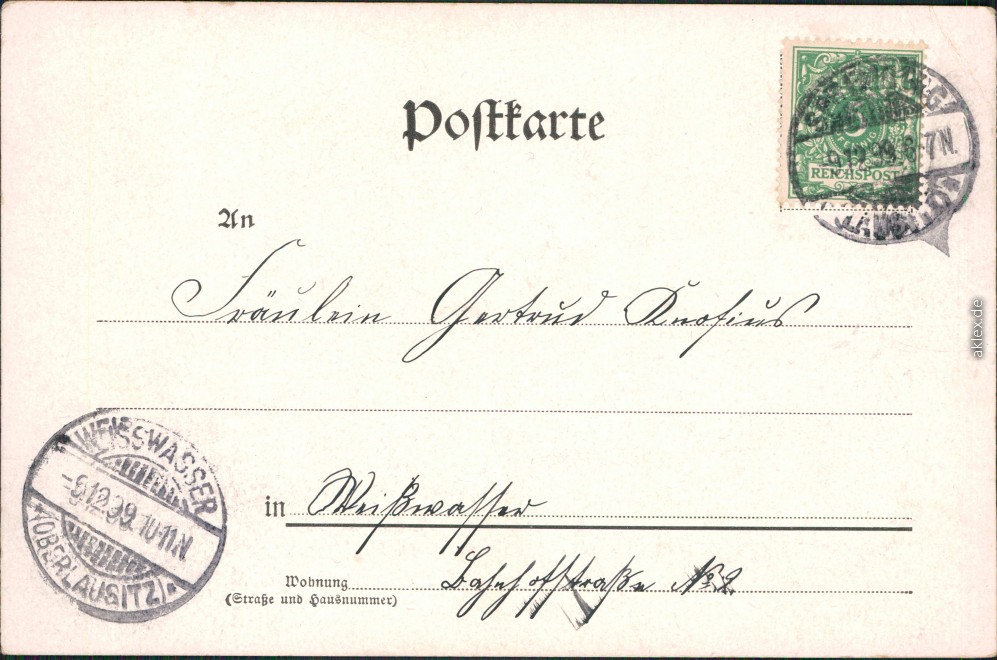 Postkarte
5
REICHSPOST
9.12.99. 6-7N.
LAUSITZ
An
Fräulein Gertrud Knofius
WEISSWASSER
-9.12.99. 10-11N
*(OBERLAUSITZ)*
in Weißwasser
Wohnung Bahnhofstraße No. 2
(Straße und Hausnummer)
aklex.de